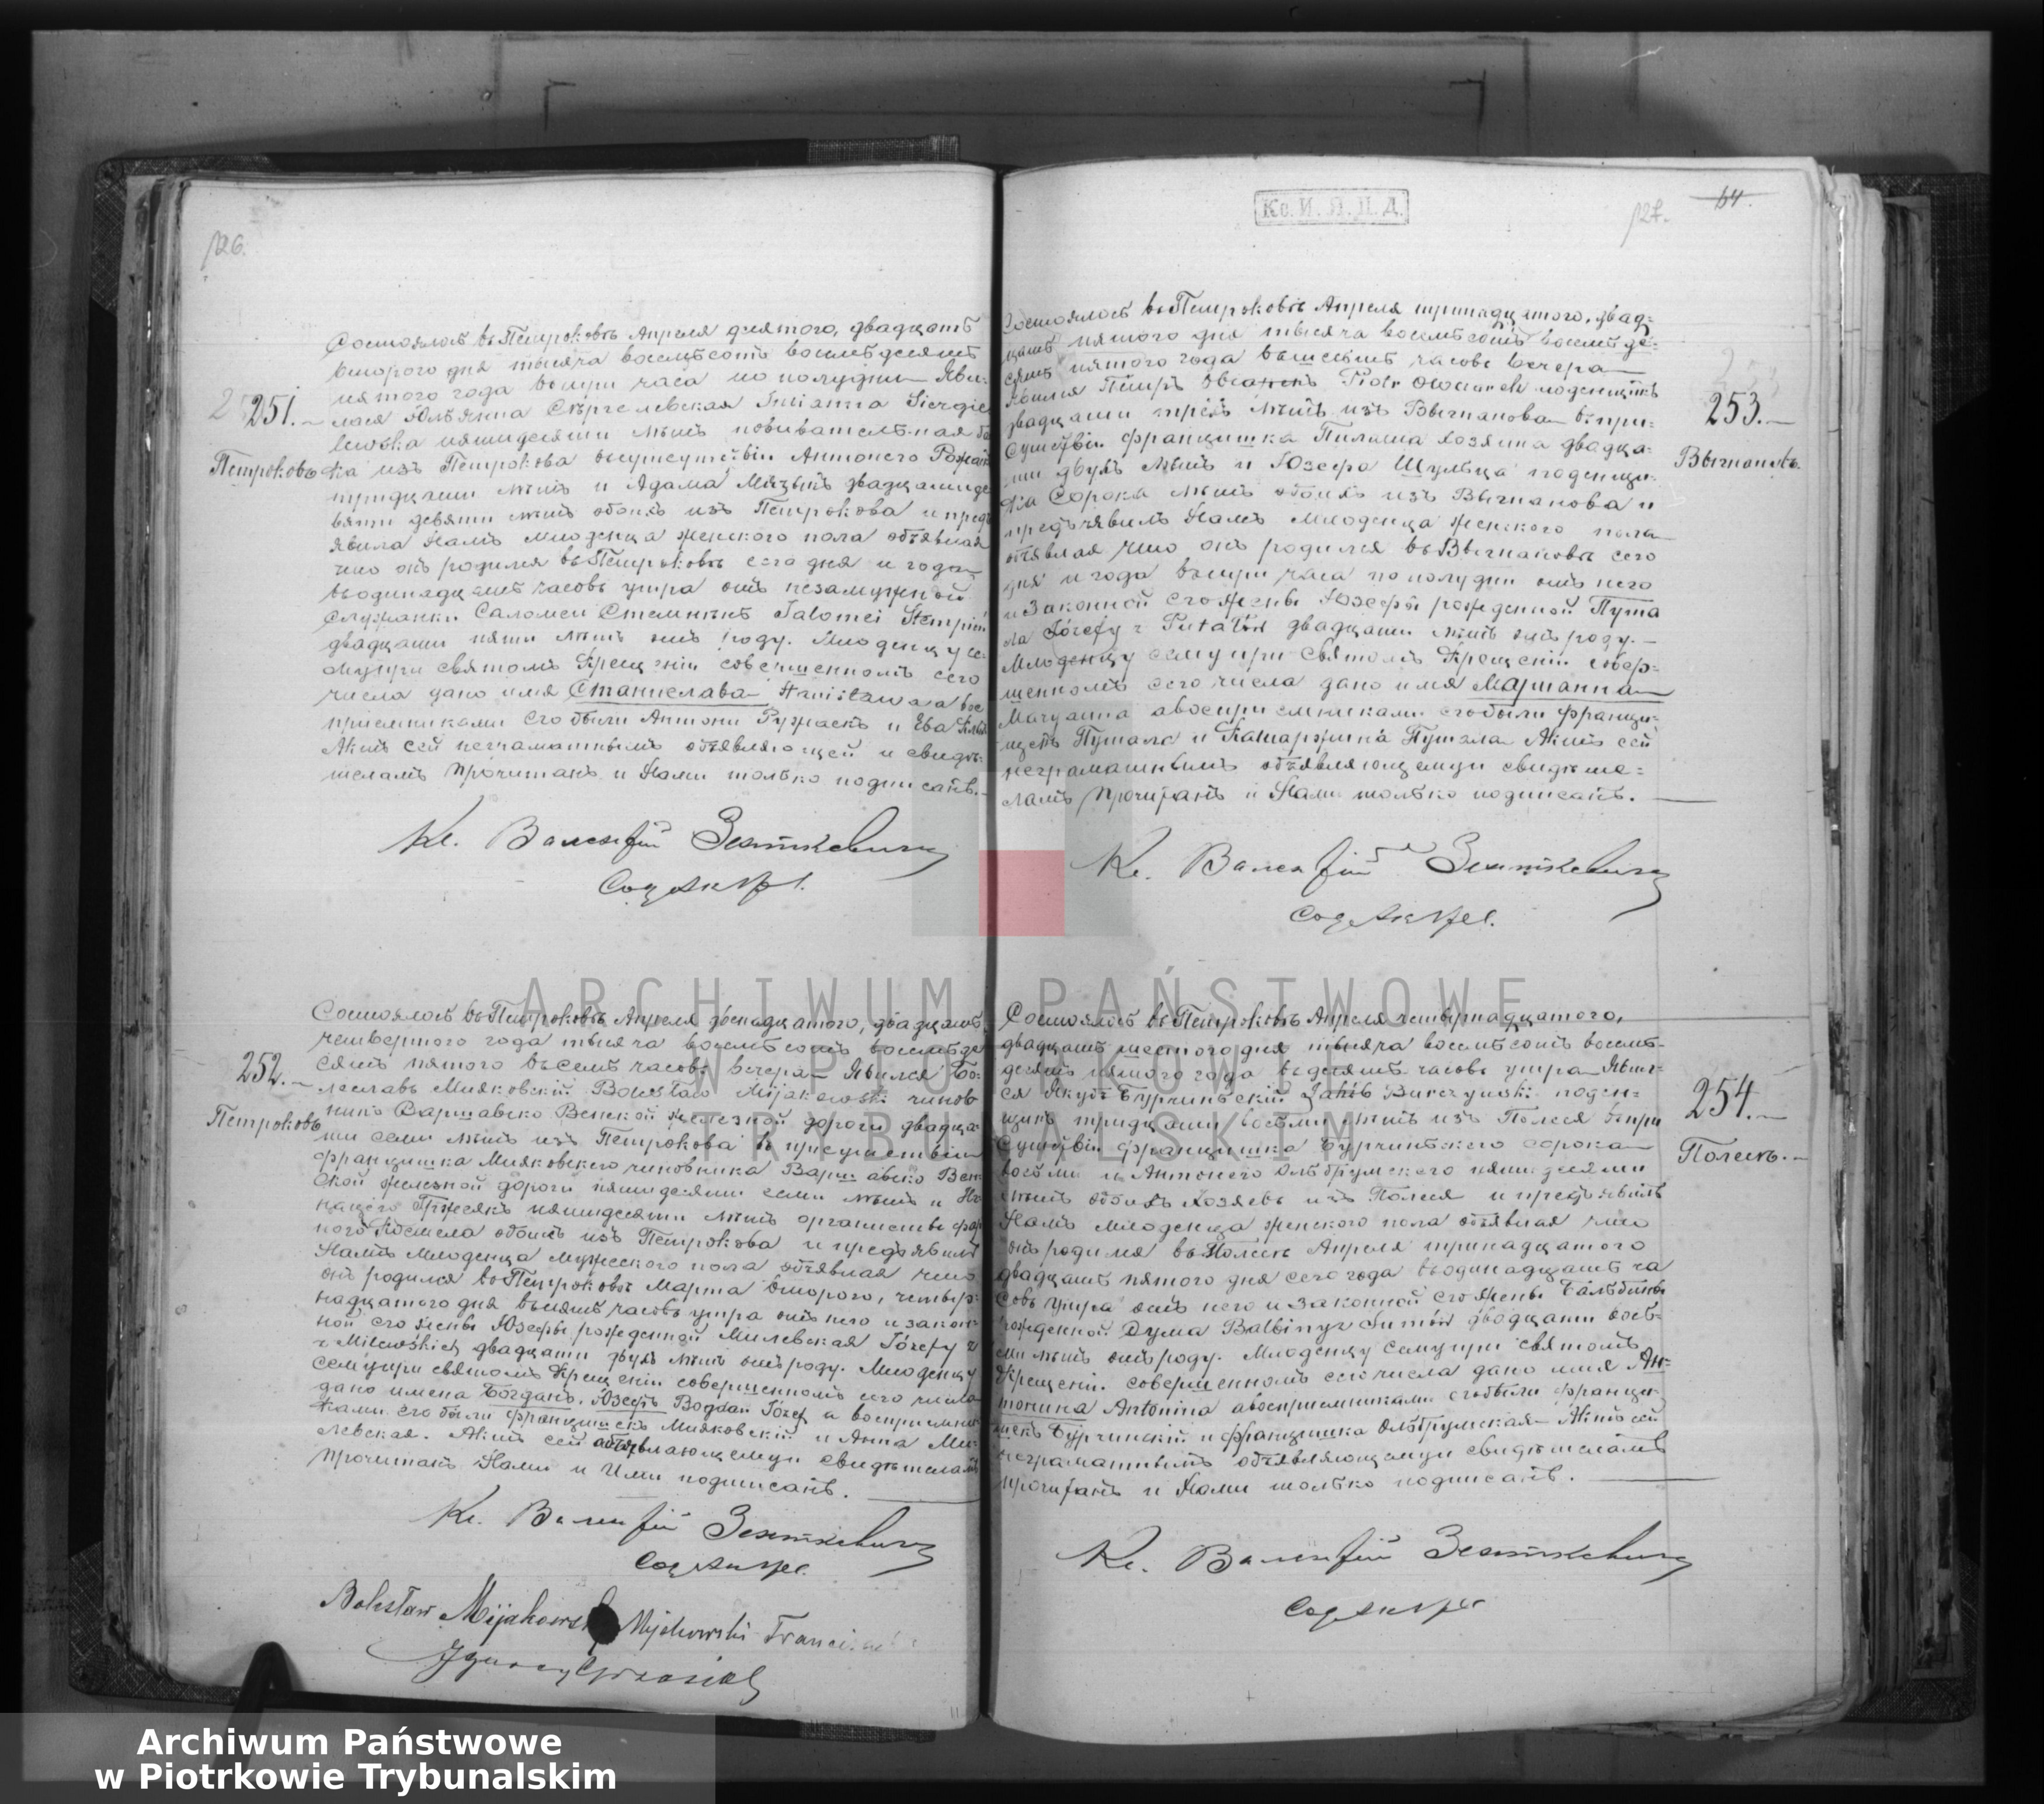 126.
251.
Петроковъ
Состоялось въ Петроковѣ Апреля десятого, двадцать
второго дня тысяча восемьсотъ восемьдесятъ
пятого года въ три часа по полудни Яви-
лася Юльянна Сѣргелевская Julianna Siergie
lewska пятидесяти лѣтъ повивательная ба
ка изъ Петрокова въ присутствіи Антонего
тридцати лѣтъ и Адама двадцати де
вяти девяти лѣтъ обоихъ изъ Петрокова и предъ
явила Намъ младенца женского пола объявляя
что онъ родился въ Петроковѣ сего дня и года
въ одинадцать часовъ утра отъ незамужной
служанки Саломеи Стемпинь Salomei Stempień
двадцати пяти лѣтъ отъ роду. Младенцу се
му при святомъ Крещеніи совершенномъ сего
числа дано имя Станислава Stanisława а вос
приемниками его были Антони и Ева
Актъ сей неграматнымъ объявляющей и свидѣ-
телямъ прочитанъ и Нами только подписанъ.
Кс. Валентій
Сод. Ак. Гр. С.
252.
Петроковъ
Состоялось въ Петроковѣ Апреля двенадцатого, двадцать
четвертого года тысяча восемьсотъ восемьде
сятъ пятого въ семь часовъ вечера Явился Бо-
леславъ Мияковскій Bolesław Mijakowski чинов
никъ Варшавско Венской железной дороги двадца
ти семи лѣтъ изъ Петрокова въ присутствіи
Францишка Мияковского чиновника Варшавско Вен
ской железной дороги пятидесяти семи лѣтъ и Иг
нацего Гржесякъ пятидесяти лѣтъ органисты фар
ного Костела обоихъ изъ Петрокова и предъявилъ
Намъ младенца мужеского пола объявляя что
онъ родился въ Петроковѣ Марта второго, четыр-
надцатого дня въ пять часовъ утра отъ него и закон-
ной его жены Юзефы рожденной Милевская Józefy z
z Milewskich двадцати двухъ лѣтъ отъ роду. Младенцу
сему при святомъ Крещеніи совершенномъ сего числа
дано имена Богданъ, Юзефъ Bogdan Józef а восприемни
ками его были Францишекъ Мияковскій и Анна Ми-
левская. Актъ сей объявляющему и свидѣтелямъ
прочитанъ Нами и Ими подписанъ.
Кс. Валентій
Сод. Ак. Гр. С.
Bolesław Mijakowski Mijakowski Franciszek
Ignacy Grzesiak
Кс. И. Я. П. Д.
127.
64.
253.
Состоялось въ Петроковѣ Апреля тринадцатого, двад-
цать пятого дня тысяча восемьсотъ восемьде-
сятъ пятого года въ шесть часовъ вечера
Явился Петръ Овсянекъ Piotr Owsianek поденщикъ
двадцати трехъ лѣтъ изъ Вычпанова въ при-
сутствіи Францишка хозяина двадца-
ти двухъ лѣтъ и Юзефа Шульца поденщи-
ка сорока лѣтъ обоихъ изъ Вычпанова и
предъявилъ Намъ младенца женского пола
объявляя что онъ родился въ Вычпановѣ сего
дня и года въ три часа по полудни отъ него
и законной его жены Юзефы рожденной Пута
ла Józefy z Putałów двадцати лѣтъ отъ роду.
Младенцу сему при святомъ Крещеніи совер-
шенномъ сего числа дано имя Марианна
Maryanna а восприемниками его были Франци-
шекъ Путала и Катаржина Путала Актъ сей
неграматнымъ объявляющему и свидѣте-
лямъ прочитанъ и Нами только подписанъ.
Кс. Валентій
Сод. Ак. Гр. С.
254.
Полесѣ.
Состоялось въ Петроковѣ Апреля четырнадцатого,
двадцать шестого дня тысяча восемьсотъ восемь-
десятъ пятого года въ десять часовъ утра Явил-
ся Якубъ Бурчинскій Jakób Burczyński поден-
щикъ тридцати восьми лѣтъ изъ Полеся въ при
сутствіи Францишка Бурчинского сорока
восьми и Антонего Ольбрумского пятидесяти
лѣтъ обоихъ хозяевъ изъ Полеся и предъявилъ
Намъ младенца женского пола объявляя что
онъ родился въ Полесѣ Апреля тринадцатого
двадцать пятого дня сего года въ одинадцать ча
совъ утра отъ него и законной его жены Бальбины
рожденной Дума Balbiny z Dumów двадцати вось-
ми лѣтъ отъ роду. Младенцу сему при святомъ
Крещеніи совершенномъ сего числа дано имя Ан-
тонина Antonina а восприемниками его были Франци
шекъ Бурчинскій и Францишка Ольбрумская Актъ сей
неграматнымъ объявляющему и свидѣтелямъ
прочитанъ и Нами только подписанъ.
Кс. Валентій
Сод. Ак. Гр. С.
ARCHIWUM PAŃSTWOWE
W PIOTRKOWIE
TRYBUNALSKIM
Archiwum Państwowe
w Piotrkowie Trybunalskim